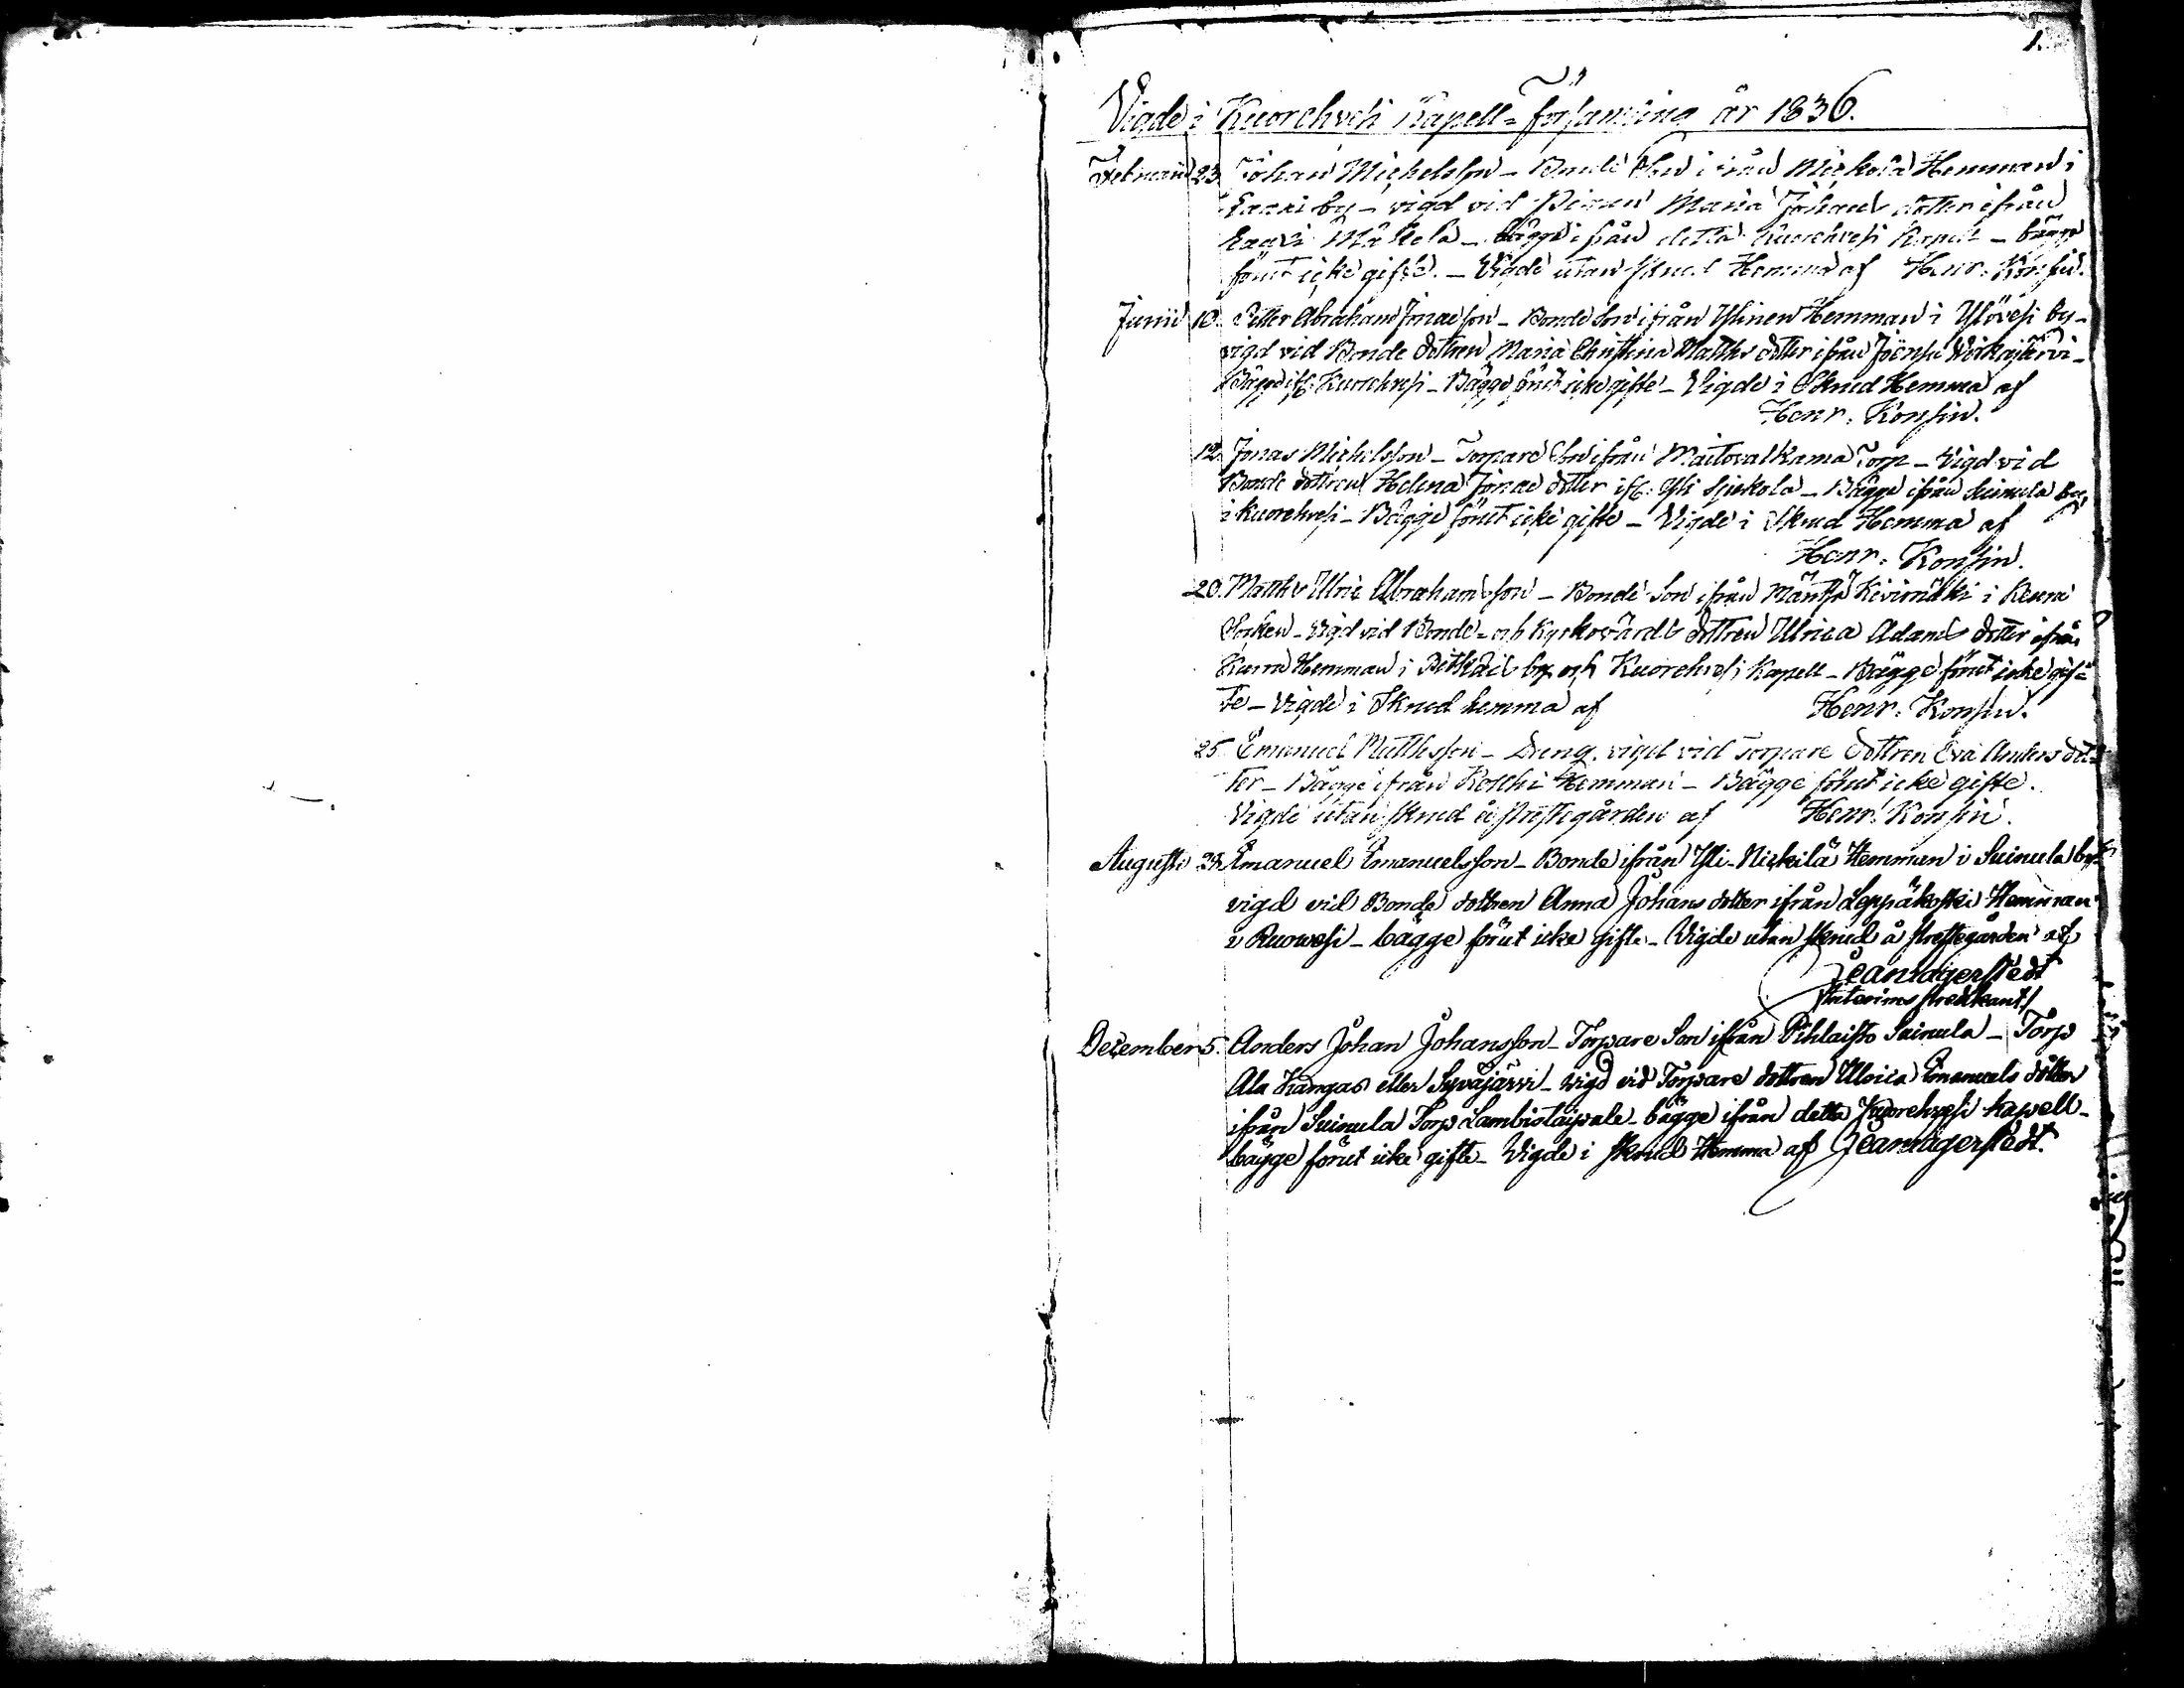 1.
Vigde i Kuorehvesi Kapell-Församling år 1836.
Februarii 23. Johan Michelsson - Bonde Son ifrån Mickola Hemman i
by - vigd vid Pigan Maria Johans dotter ifrån
Mäkelä - bägge ifrån detta Kuorehvesi Kapell - bägge
förut icke gifte. - Vigde utan skrud Hemma af Henr. Konsin.
Junii 10. Petter Abraham Jonaeson - Bonde Son ifrån Ylinen Hemman i Ylövesi by -
vigd vid Bonde dottren Maria Christina Matths dotter ifrån
Bägge ifr. Kuorehvesi - Bägge förut icke gifte - Vigde i Skrud Hemma af
Henr. Konsin.
12. Jonas Michelsson - Torpare Son ifrån Maitovalkama Torp - Vigd vid
Bonde dottren Helena Jonae dotter ifr. Yli - Bägge ifrån Suinula by
i Kuorehvesi - Bägge förut icke gifte - Vigde i Skrud Hemma af
Henr. Konsin.
20. Matths Ulric Abrahamsson - Bonde Son ifrån Mänttä Kivimäki i Keuru
Socken - Vigd vid Bonde- och Kyrkovärds dottren Ulrica Adams dotter ifrån
Hemman i by och Kuorehvesi Kapell - Bägge förut icke gif=
te - Vigde i Skrud hemma af Henr. Konsin.
25. Emanuel Matthsson - Dreng, vigd vid Torpare dottren Eva Anders dot=
ter - Bägge ifrån Koskhi Hemman - Bägge förut icke gifte.
Vigde utan skrud å prestegården af Henr. Konsin.
Augusti 28. Emanuel Emanuelsson - Bonde ifrån Yli-Nickilä Hemman i Suinula by
vigd vid Bonde dottren Anna Johans dotter ifrån Leppäkoski Hemman
i Ruowesi - bägge förut icke gifte - Vigde utan skrud å prestegården af
Jean Lagerstedt
Interims predikant/
December 5. Anders Johan Johansson - Torpare Son ifrån Pihlaisto Suinula - Torp
Ala Kangas eller Syväjärvi - vigd vid Torpare dottren Ulrica Emanuels dotter
ifrån Suinula Torp Lambistaipale - bägge ifrån detta Kuorehvesi kapell -
bägge förut icke gifte - Vigde i skrud Hemma af Jean Lagerstedt.